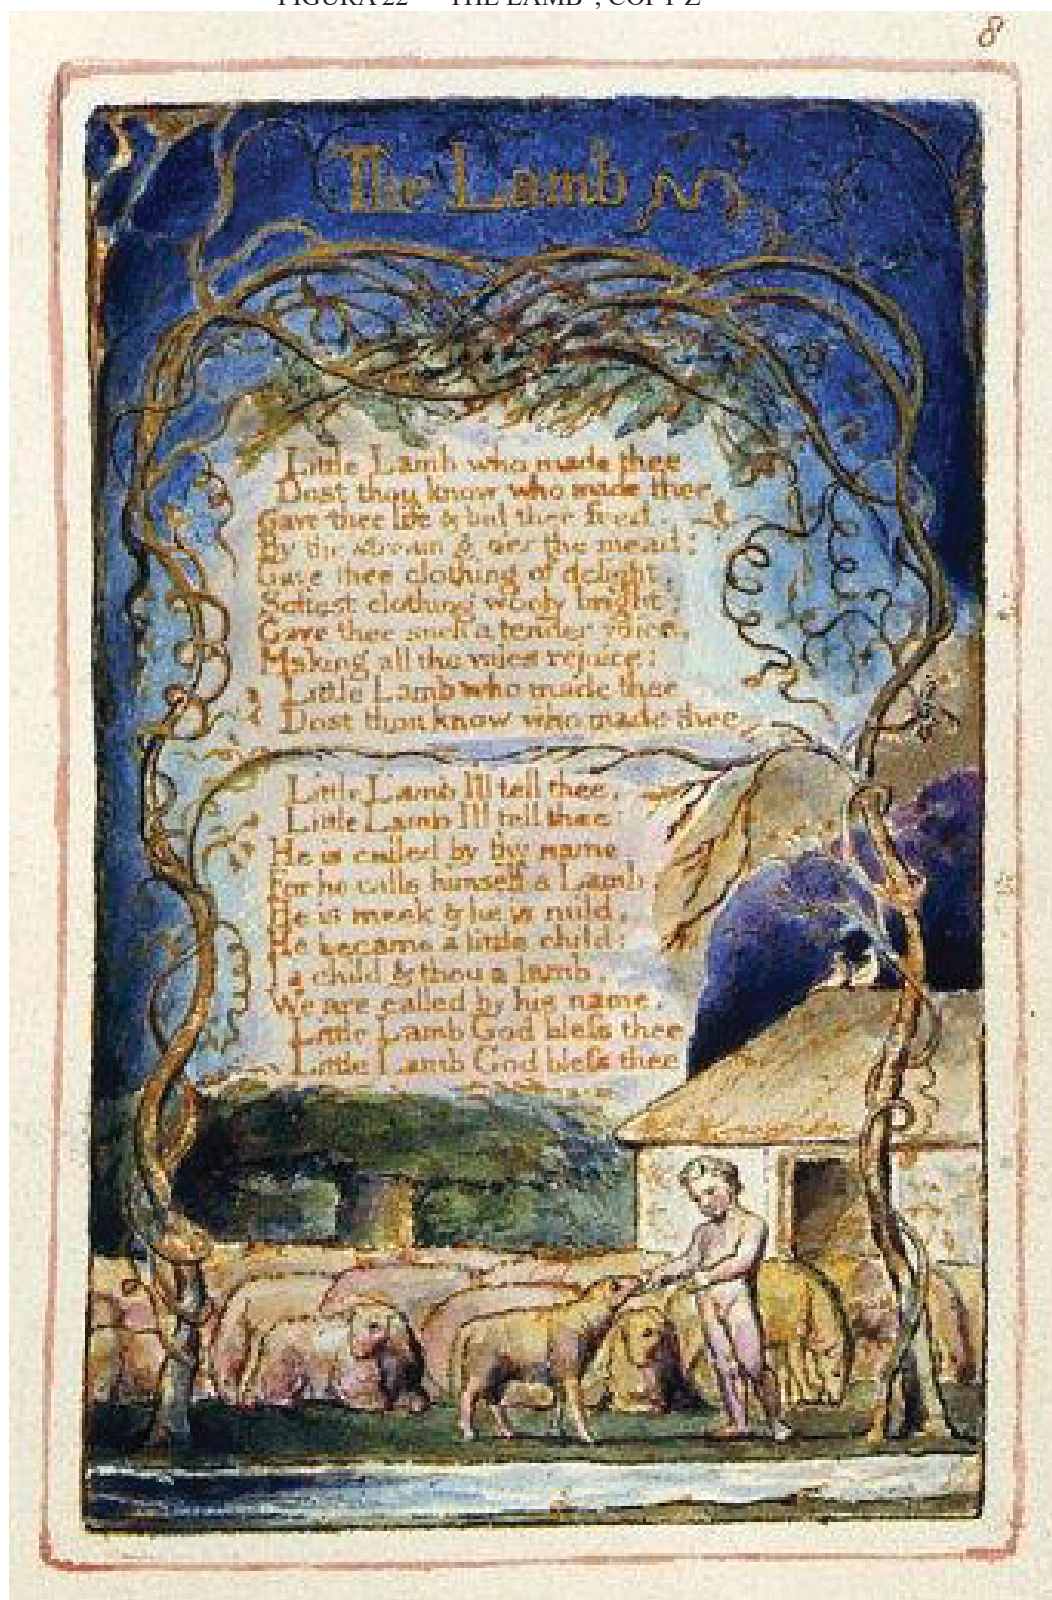 FIGURA 22 – "THE LAMB", COPY Z
8
The Lamb
Little Lamb who made thee
Dost thou know who made thee
Gave thee life & bid thee feed.
By the stream & o'er the mead;
Gave thee clothing of delight,
Softest clothing wooly bright;
Gave thee such a tender voice,
Making all the vales rejoice:
Little Lamb who made thee
Dost thou know who made thee
Little Lamb I'll tell thee,
Little Lamb I'll tell thee:
He is called by thy name,
For he calls himself a Lamb:
He is meek & he is mild,
He became a little child:
I a child & thou a lamb,
We are called by his name.
Little Lamb God bless thee
Little Lamb God bless thee